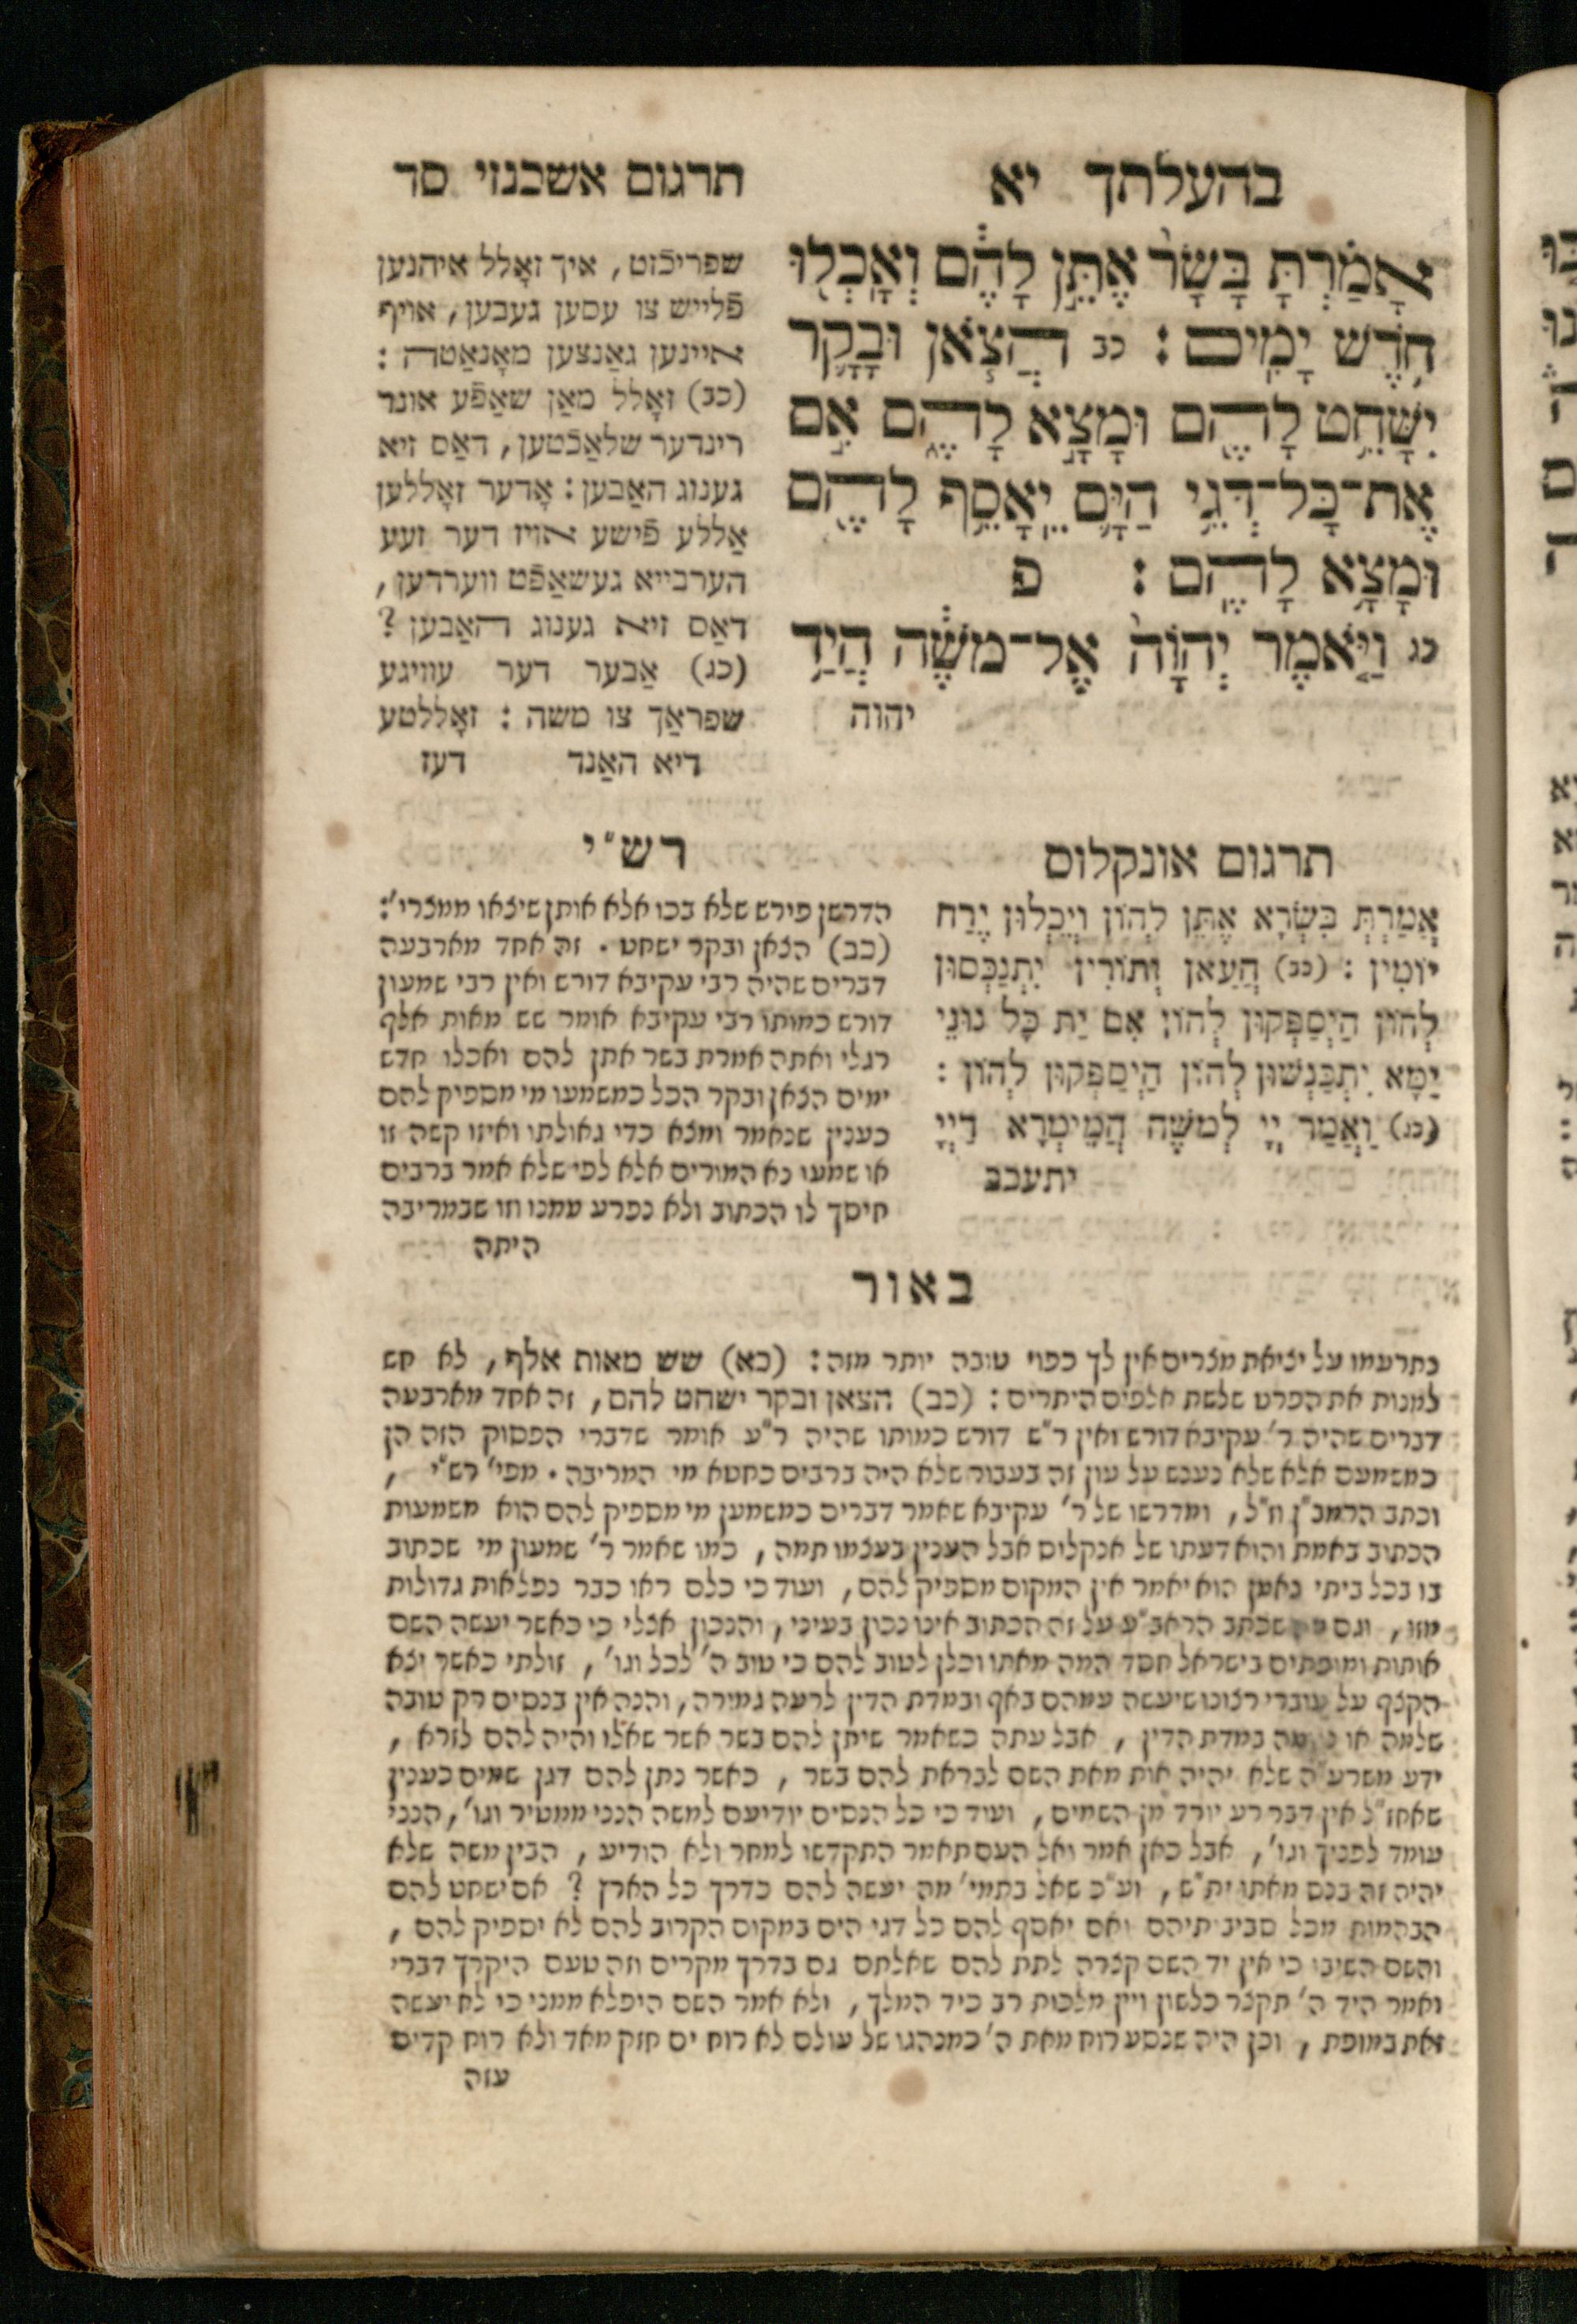 בהעלתך יא
תרגום אשכנזי סד
אָמַ֔רְתָּ בָּשָׂר֙ אֶתֵּ֣ן לָהֶ֔ם וְאָכְל֖וּ
חֹ֥דֶשׁ יָמִֽים׃ כב הֲצֹ֧אן וּבָקָ֛ר
יִשָּׁחֵ֥ט לָהֶ֖ם וּמָצָ֣א לָהֶ֑ם אִ֣ם
אֶֽת־כָּל־דְּגֵ֥י הַיָּ֛ם יֵאָסֵ֥ף לָהֶ֖ם
וּמָצָ֥א לָהֶֽם׃ פ
כג וַיֹּ֤אמֶר יְהוָֹה֙ אֶל־מֹשֶׁ֔ה הֲיַ֥ד
יהוה
שפריכֿזט, איך זאָלל איהנען
פֿלייש צו עסען געבען, אויף
איינען גאַנצען מאָנאַטה :
(כב) זאָלל מאַן שאַפֿע אונד
רינדער שלאַכֿטען, דאַס זיא
גענוג האַבען : אָדער זאָללען
אַללע פֿישע אויז דער זעע
הערבייא געשאַפֿט ווערדען,
דאַס זיא גענוג האַבען ?
(כג) אַבער דער עוויגע
שפראַך צו משה : זאָללטע
דיא האַנד דעז
תרגום אונקלוס
אֲמַרְתְּ בִּשְׂרָא אֶתֵּן לְהוֹן וְיֵכְלוּן יֶרַח
יוֹמִין : (כב) הֲעָאן וְתוֹרִין יִתְנַכְּסוּן
לְהוֹן הַיְסַפְּקוּן לְהוֹן אִם יַת כָּל נוּנֵי
יַמָּא יִתְכַּנְשׁוּן לְהוֹן הַיְסַפְּקוּן לְהוֹן :
(כג) וַאֲמַר יְיָ לְמשֶׁה הֲמֵימְרָא דַיְיָ
יתעכב
רש"י
הדרשן פירש שלא בכו אלא אותן שיצאו ממצרי' :
(כב) הצאן ובקר ישחט. זה אחד מארבעה
דברים שהיה רבי עקיבא דורש ואין רבי שמעון
דורש כמותו רבי עקיבא אומר שש מאות אלף
רגלי ואתה אמרת בשר אתן להם ואכלו חדש
ימים הצאן ובקר הכל כמשמעו מי מספיק להם
כענין שנאמר ומצא כדי גאולתו ואיזו קשה זו
או שמעו נא המורים אלא לפי שלא אמר ברבים
חיסך לו הכתוב ולא נפרע ממנו וזו שבמריבה
היתה
באור
נתרעמו על יציאת מצרים אין לך כפוי טובה יותר מזה : (כא) שש מאות אלף, לא חש
למנות את הפרט שלשת אלפים היתרים : (כב) הצאן ובקר ישחט להם, זה אחד מארבעה
דברים שהיה ר' עקיבא דורש ואין ר"ש דורש כמותו שהיה ר"ע אומר שדברי הפסוק הזה הן
כמשמעם אלא שלא נענש על עון זה בעבור שלא היה ברבים כחטא מי המריבה. מפי' רש"י,
וכתב הרמב"ן ז"ל, ומדרשו של ר' עקיבא שאמר דברים כמשמען מי מספיק להם הוא משמעות
הכתוב באמת והוא דעתו של אנקלוס אבל הענין בעצמו תמה, כמו שאמר ר' שמעון מי שכתוב
בו בכל ביתי נאמן הוא יאמר אין המקום מספיק להם, ועוד כי כלם ראו כבר נפלאות גדולות
מזו, וגם שכתב הראב"ע על זה הכתוב אינו נכון בעיני, והנכון אצלי כי כאשר יעשה השם
אותות ומופתים בישראל חסד המה מאתו וכלן לטוב להם כי טוב ה' לכל וגו', זולתי כאשר יצא
הקצף על עוברי רצונו שיעשה עמהם באף ובמדת הדין לרעה גמורה, והנה אין בנסים רק טובה
שלמה או במדת הדין, אבל עתה כשאמר שיתן להם בשר אשר שאלו והיה להם לזרא,
ידע משרע"ה שלא יהיה אות מאת השם לבראת להם בשר, כאשר נתן להם דגן שמים כענין
שאחז"ל אין דבר רע יורד מן השמים, ועוד כי כל הנסים יודיעם למשה הנני ממטיר וגו', הנני
עומד לפניך וגו', אבל כאן אמר ואל העם תאמר התקדשו למחר ולא הודיע, הבין משה שלא
יהיה זה בנס מאתו ית"ש, וע"כ שאל בתמי' מה יעשה להם כדרך כל הארץ ? אם ישחט להם
הבהמות מכל סביבותיהם ואם יאסף להם כל דגי הים במקום הקרוב להם לא יספיק להם,
והשם השיבו כי אין יד השם קצרה לתת להם שאלתם גם בדרך מקרים וזה טעם היקרך דברי
ואמר היד ה' תקצר כלשון ויין מלכות רב כיד המלך, ולא אמר השם היפלא ממני כי לא יעשה
זאת במופת, וכן היה שנסע רוח מאת ה' כמנהגו של עולם לא רוח ים חזק מאד ולא רוח קדים
עזה